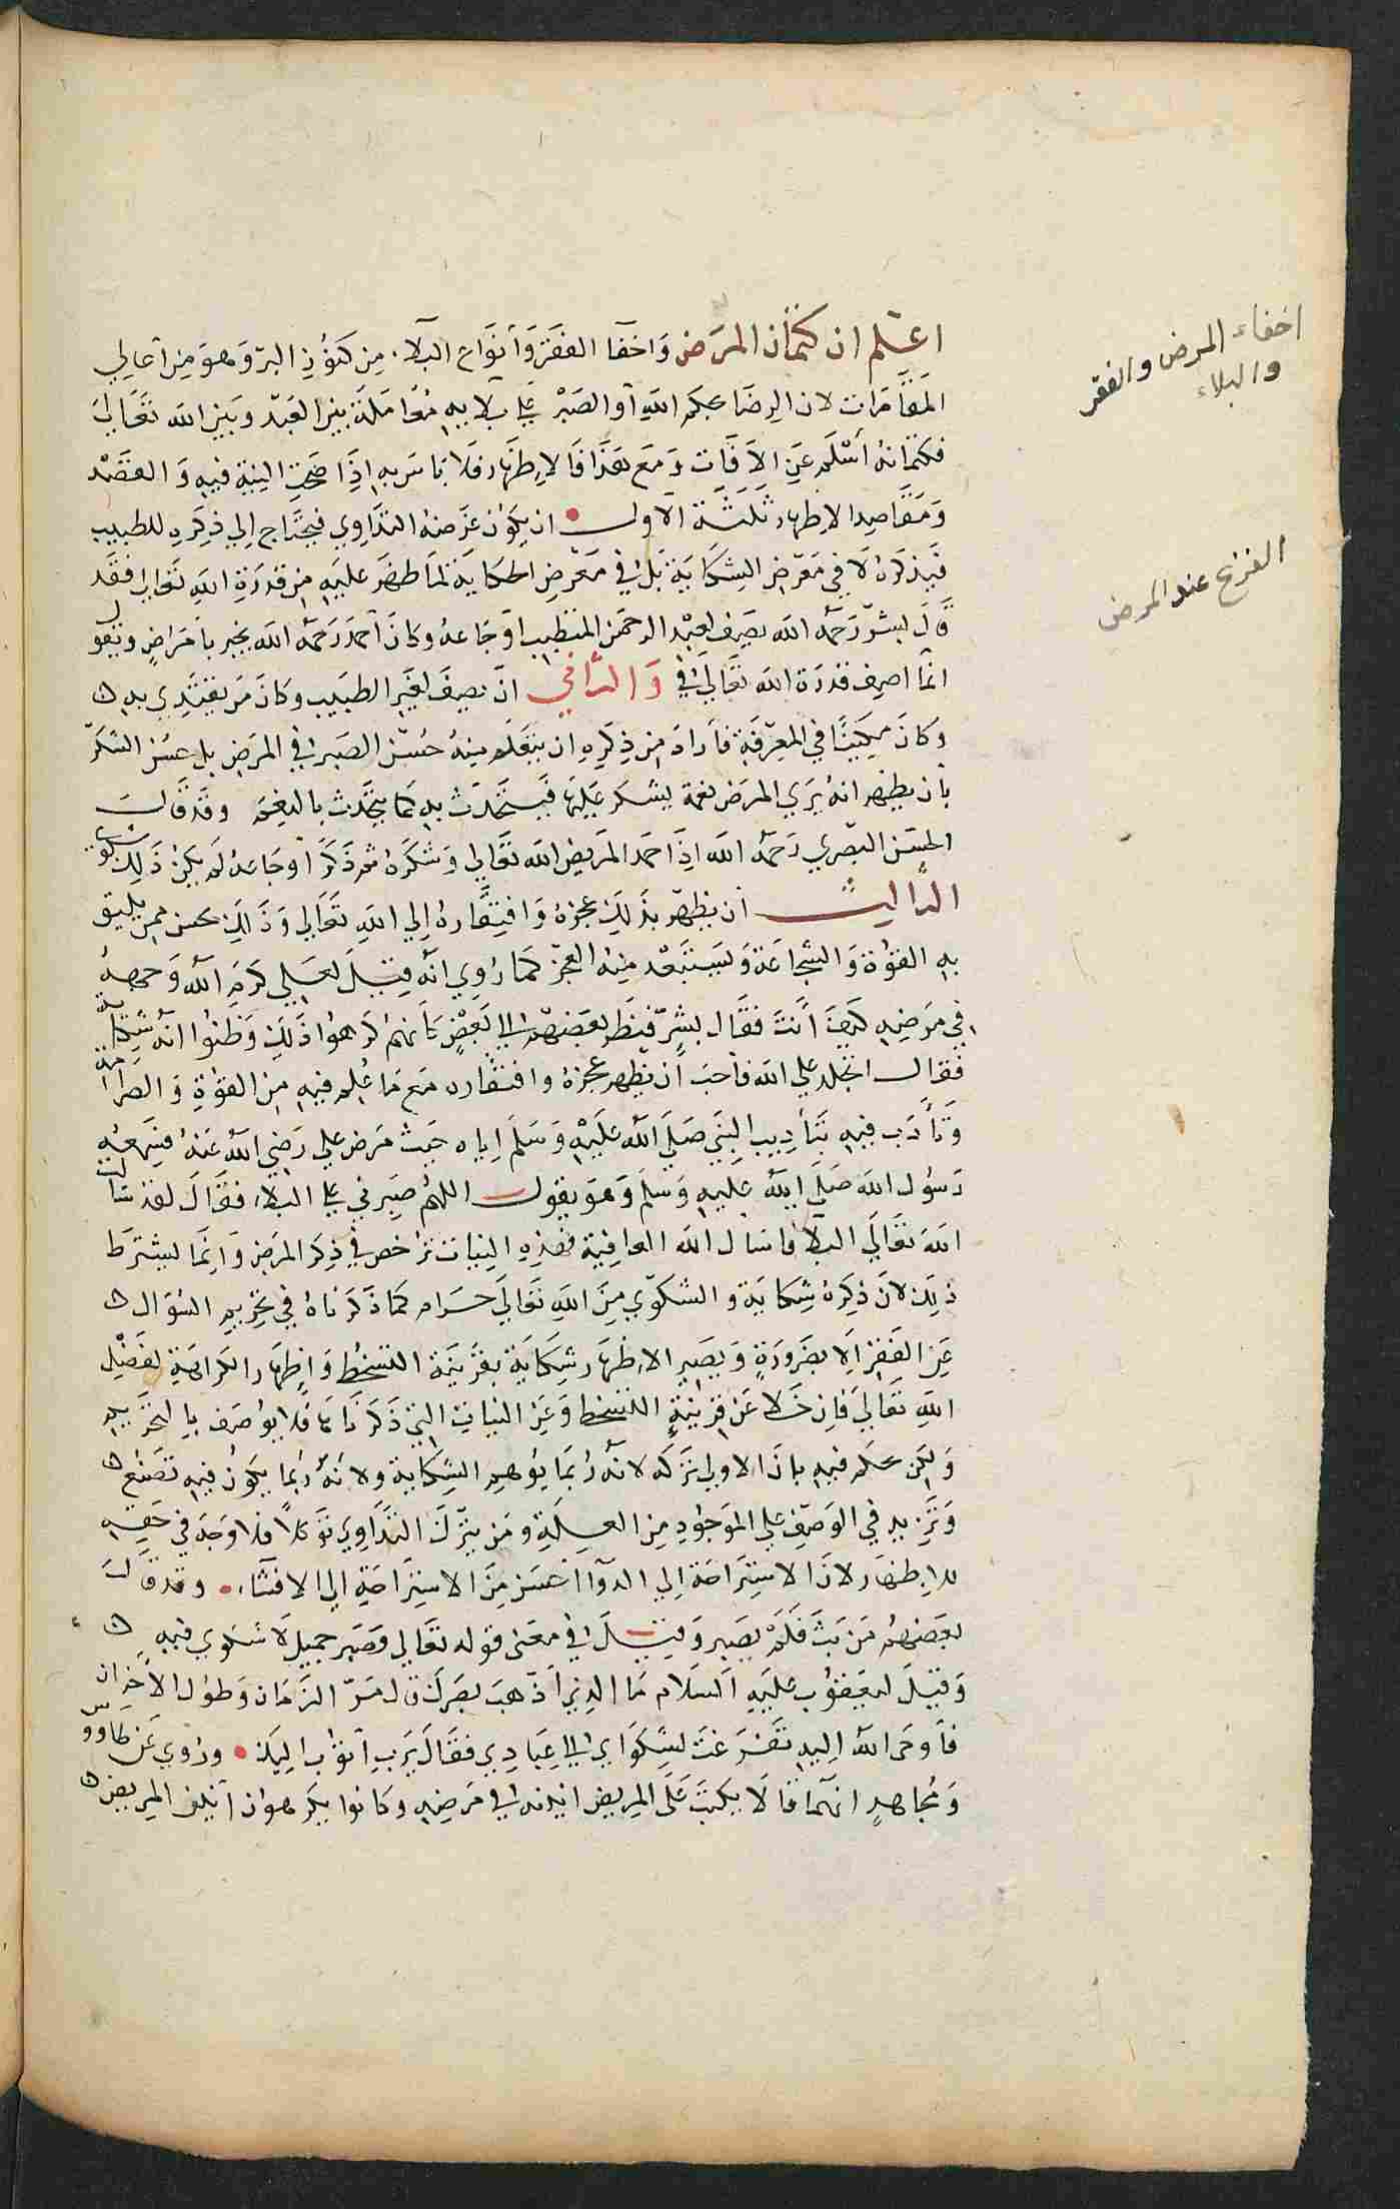 اعلم ان كتمان المرض وَاخفآ الفقر وَأنوَاع البَلآء. مِن كنوُز البرّ وَهوَ مِن آعَالي
المقامَات لان الرِضَا بحكم اللّهِ أو الصَبْر علي بلآيهِ مُعَامَلة بين العَبد وبَين الله تعَالىَ
فكتمانهُ أسْلَم عَن الآفات وَمَع هَذا فالإظهَار فلا باس بهِ اِذا صحّتِ النيّة فيه وَ القصْد
وَمَقاصد الاظهار ثلثَة الآول ان يكوُن غرَضهُ التدَاوي فيحتاج اِلي ذكِرهِ للطبيب
فَيَذكرهُ لا في مَعرَض الشِكايَة بَل في مَعْرض الحكايَة لما ظهَر عليهِ مِن قدرَةِ اللهِ تعَالي فقد
قالَ بشر رَحمه الله يَصِف لعبْد الرحمَن المتطبّب اوجَاعهُ وكانَ أحمَدَ رَحمَهُ الله يخبر بامَرَاضٍ ويقول
انما اصِف قدرَة الله تعَالي فيَّ وَ الثَّاني انّ يصِفَ لغَير الطبيب وكانَ مَن يقتدِي بهِ
وكانَ مكيَنًا في المعرِفةِ فأرادَ مِن ذِكِرهِ ان يتعَلم مِنهُ حُسن الصَبر في المرَض بل حسُن الشكر
بأن يظهر انهُ يَرَي المرَض نعمة يشكر عَليَها فيتحَدث بهِ كما يتحَدث بالنِعَم وقد قالَ
الحَسَن البَصري رَحمهُ الله اِذا حَمد المرَيض الله تعَالي وَشكرهُ ثم ذكرَ أوجَاعهُ لم يكن ذلِك شكوي
الثالث أن يظهر بذَلِك عجزهُ وَافتِقارهُ اِلي اللهِ تعَالي وَذلِك يحسن ممن يليق
بهِ القوَة وَالشجَاعَة وَيستبعَد مِنه العجز كما رُوِي انّه قيلَ لعَلي كرَم اللهُ وَجههُ
في مرَضِهِ كيَفَ أنتَ فقال بشرٍّ فنظر بعَضهم الي بَعضٍ كأنهم كرَهوُا ذلَك وَظنوُا انهُ شكاية
فقال اتجلد علي الله فأحبَ أن يظهر عجزهُ وافتقاره مَع مَا عُلم فيهِ مِن القوَةِ وَ الصَرامَة
وَتأدَب فيهِ بتأدِيب النبي صَلي الله عَليْهِ وَسَلمَ اِياه حَيث مَرض علي رَضي الله عَنهُ فسَمعهُ
رَسوُل الله صَلَي الله عليهِ وَسَلمَ وَهوَ يقوُل اللهمُ صَبِرني علي البَلآء، فقالَ لقد سَالت
اللهَ تعَالي البَلآ فاسَال الله العافِية فهَذهِ النيات ترَخص في ذِكر المرَض وَاِنما يشترط
ذلِكَ لانَ ذكِرَهُ شِكايَة و الشكوَي مِنَ اللهِ تعَاليَ حَرام كما ذَكرَناهُ في تحرَيم السُؤال
عَن الفَقرِ اِلا بضَرورَةٍ وَيصَير الاظهَار شِكايَة بقرَينة السّخَط وَ اِظهار الكرَاهَة لفِعْل
اللهِ تعَالي فاِن خَلا عَن قرِينَةِ السّخط وَعَن النيات التي ذكرناهَا فلا يوُصَف بالتحرَيم
وَلكِن يحكم فيهِ بانَ الاولي ترَكه لانهُ رُبمَا يوُهم الشِكاية ولانهُ رُبما يكوُن فيهِ تصَنُع
وَتزَيد في الوَصف علي الموَجوُد مِنَ العِلةِ ومَن يتَرَك التدَاوِي توَكلاً فلا وَجهَ في حقهِ
للاِظهَار لانَ الاستِرَاحَة اِلي الدوَآ احسَن مِنَ الاستِرَاحَةِ الي الافشَآء. وقد قالَ
بعَضهُم مَن بَثّ فَلَم يصَبر وَقيلَ في معَنى قوله تعَالي فصَبر جميل لا شكوي فيهِ
وَقيلَ ليعَقوُب عليَهِ السَلام مَا الذي أذهبَ بصَرَك قالَ مَرّ الزمَان وَطوُل الأحَزان
فأوحَى اللهُ اِليهِ تفَرغتَ لِشكوَاي الي عِبَادِي فقالَ يَرَبِ أتوُب اِليَك وَرُوي عَن طاووس
وَمُجاهدٍ انهَما قالا يكتَب عَلَي المرِيض انينه في مَرَضهِ وكانوا يكرَهوُن أنين المرِيض
اخفاء المرض والفقر
والبلاء
عند المرض